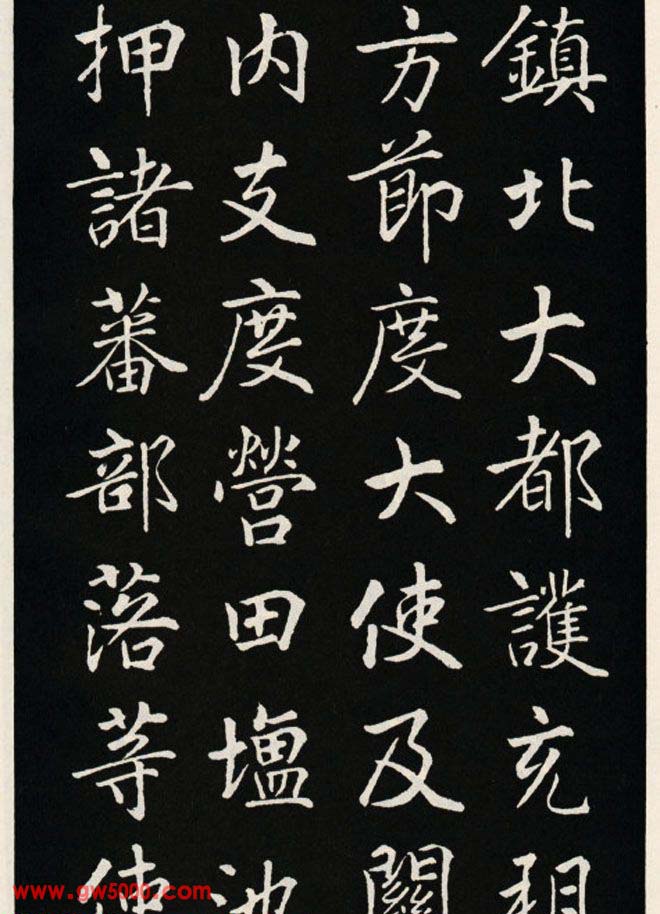 鎮北大都護充朔
方節度大使及關
內支度營田塩池
押諸蕃部落等使
www.gw5000.com